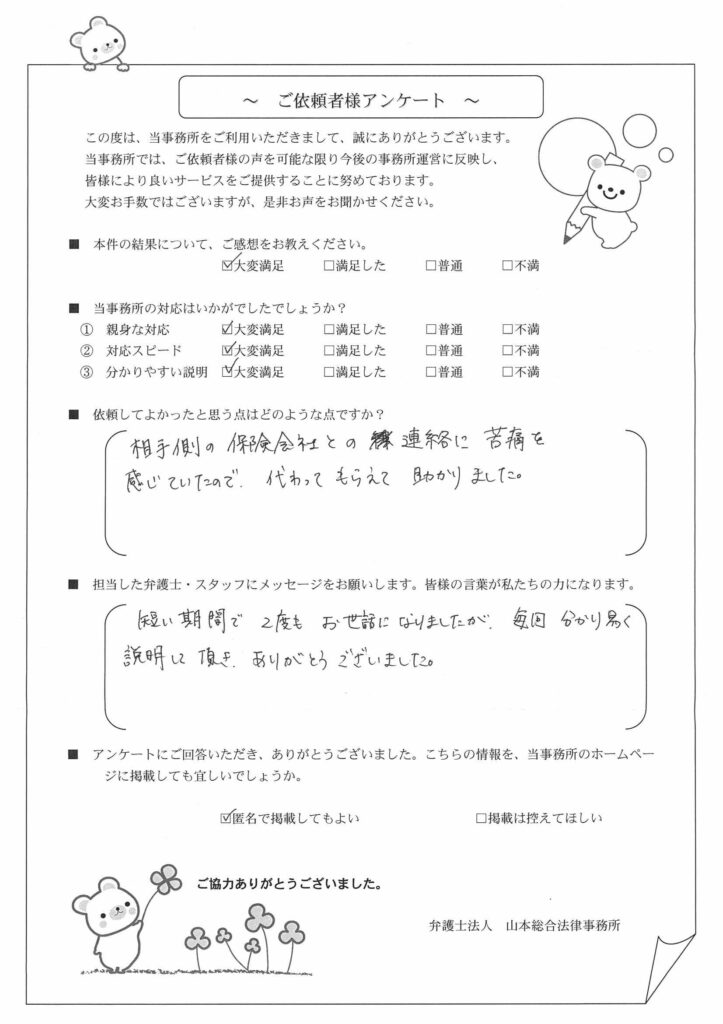 ～ ご依頼者様アンケート ～
この度は、当事務所をご利用いただきまして、誠にありがとうございます。
当事務所では、ご依頼者様の声を可能な限り今後の事務所運営に反映し、
皆様により良いサービスをご提供することに努めております。
大変お手数ではございますが、是非お声をお聞かせください。
■ 本件の結果について、ご感想をお教えください。
☑大変満足 □満足した □普通 □不満
■ 当事務所の対応はいかがでしたでしょうか？
① 親身な対応 ☑大変満足 □満足した □普通 □不満
② 対応スピード ☑大変満足 □満足した □普通 □不満
③ 分かりやすい説明 ☑大変満足 □満足した □普通 □不満
■ 依頼してよかったと思う点はどのような点ですか？
相手側の保険会社との連絡に苦痛を
感じていたので、代わってもらえて助かりました。
■ 担当した弁護士・スタッフにメッセージをお願いします。皆様の言葉が私たちの力になります。
短い期間で2度もお世話になりましたが、毎回分かり易く
説明して頂き、ありがとうございました。
■ アンケートにご回答いただき、ありがとうございました。こちらの情報を、当事務所のホームペー
ジに掲載しても宜しいでしょうか。
☑匿名で掲載してもよい □掲載は控えてほしい
ご協力ありがとうございました。
弁護士法人 山本総合法律事務所